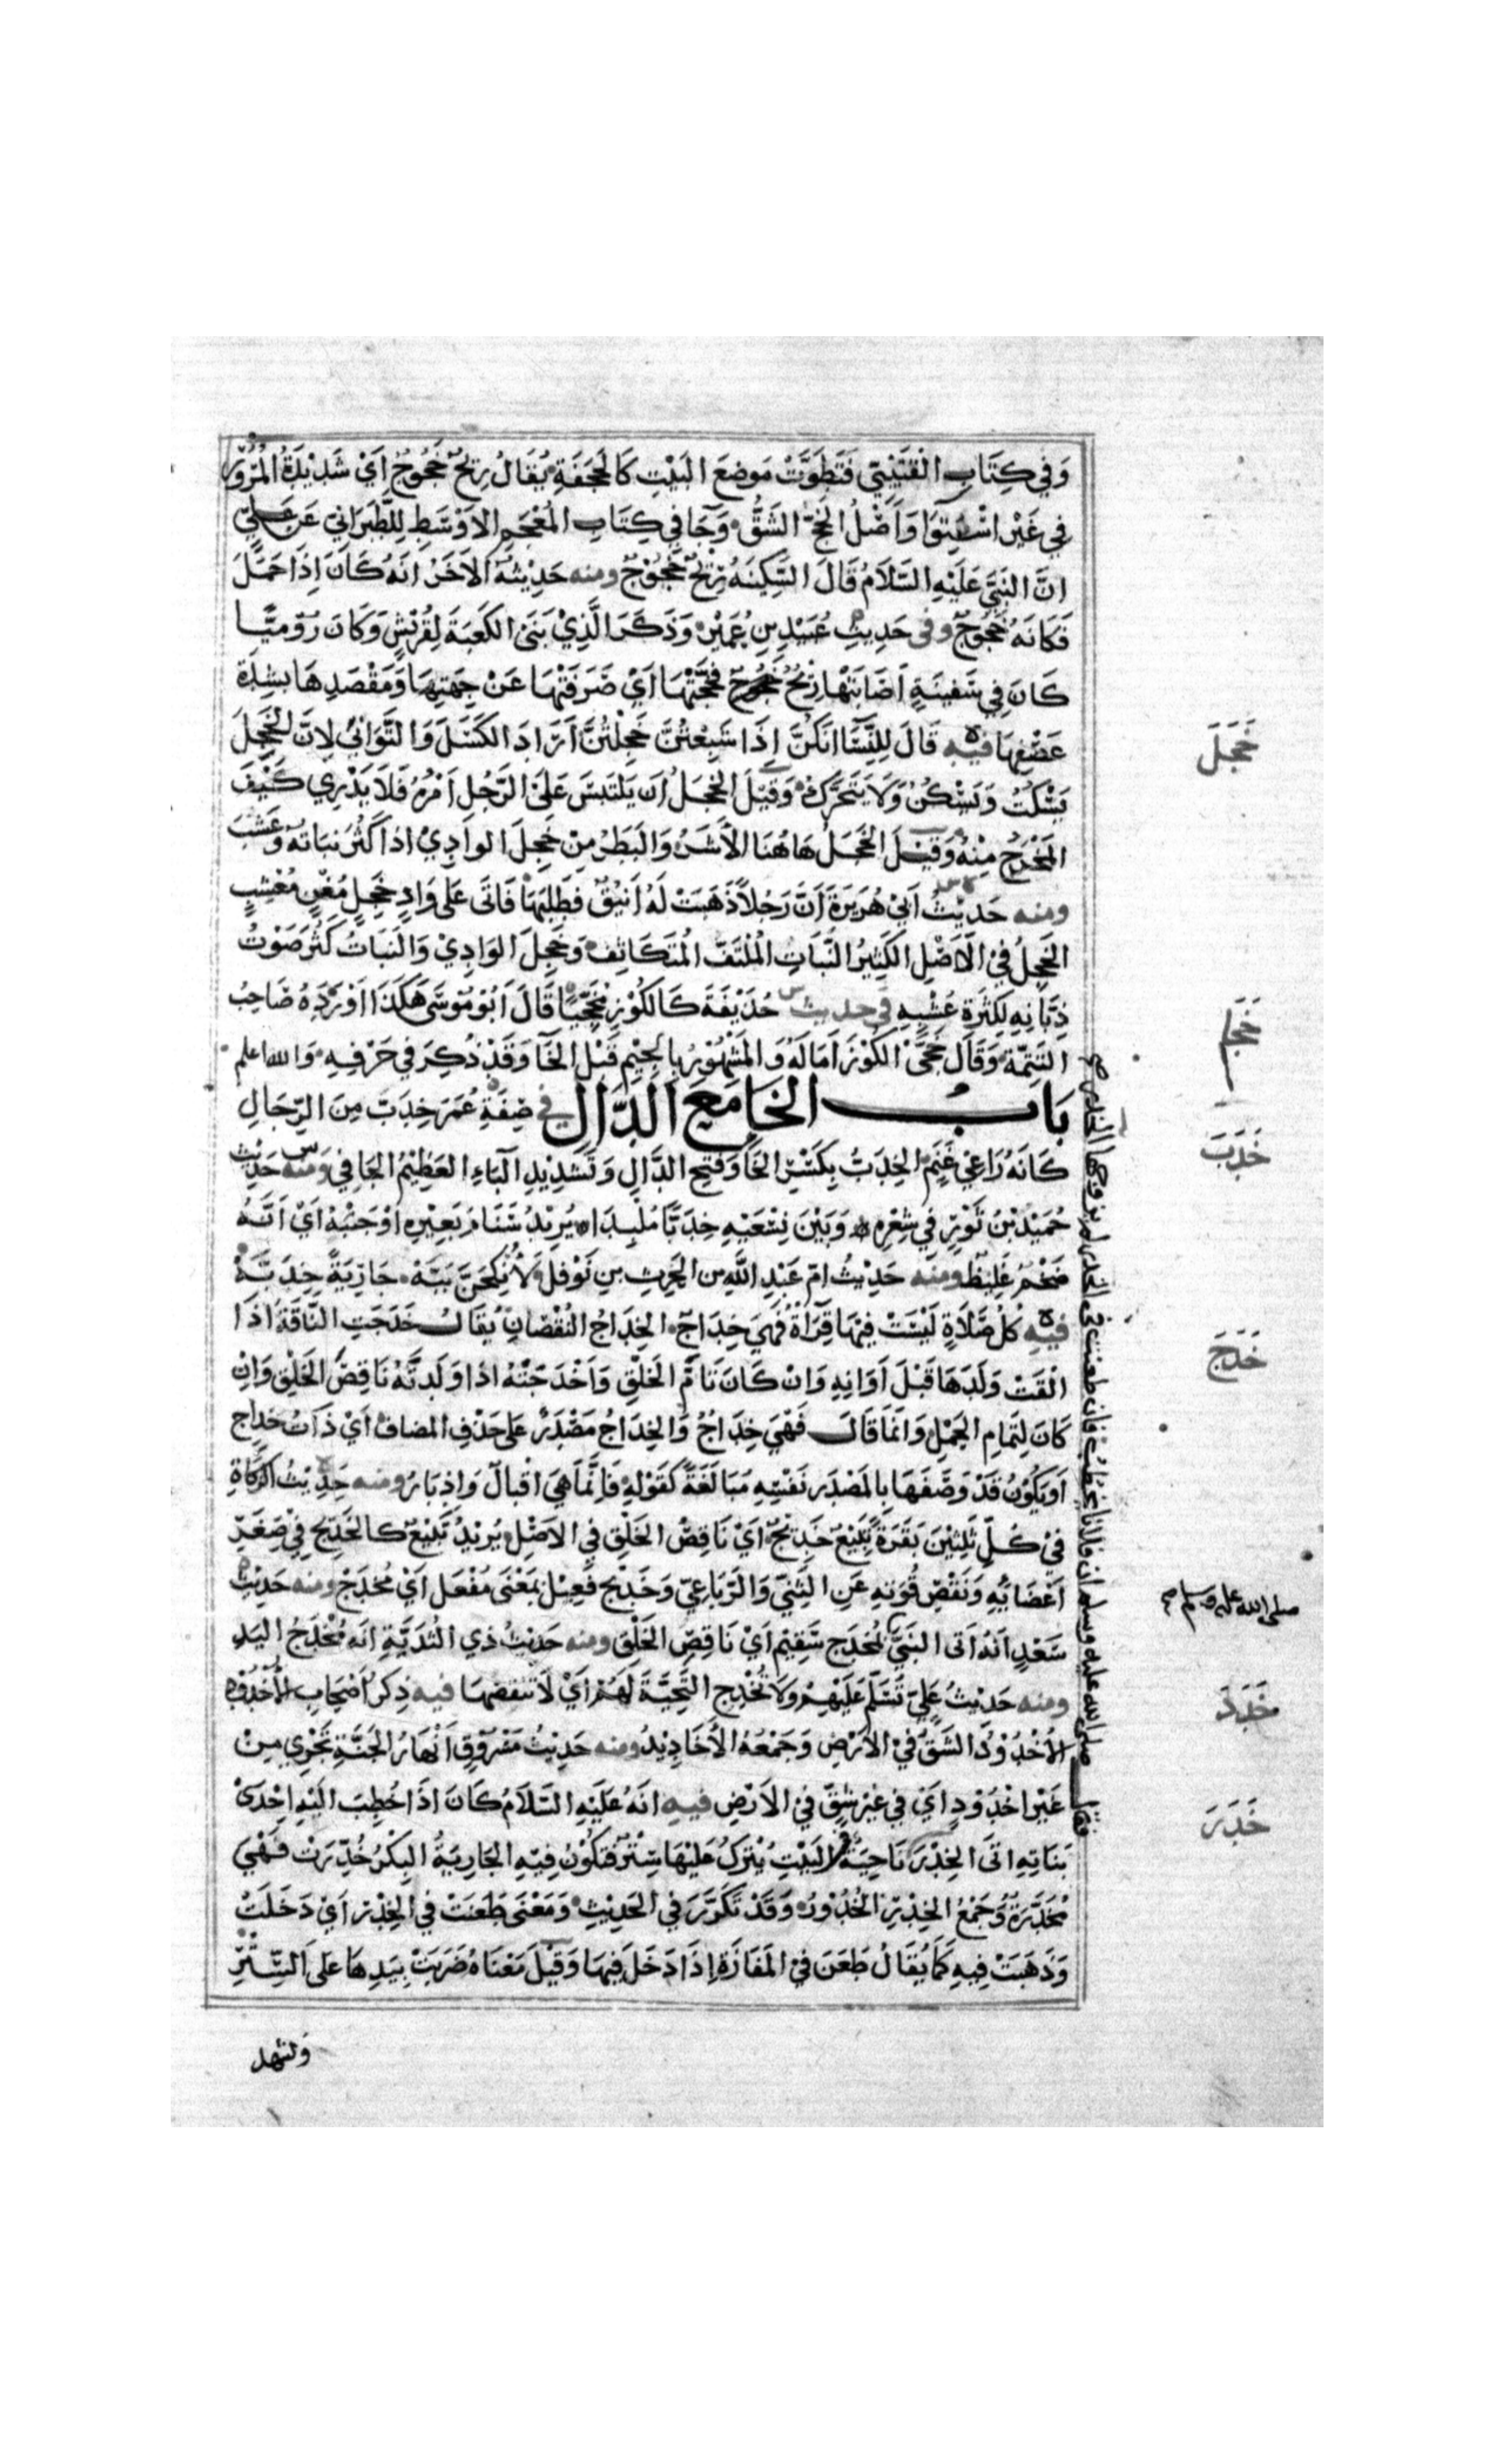 وَفِي كِتَابِ الْقُتَيْبِيّ فَتَطَوَّتْ مَوضِعَ البَيْتِ كَالحَجَفَةِ يُقَالُ رِيْحٌ خَجُوجٌ اَيْ شَدِيْدَةُ الْمُرُوْرِ
فِي غَيْرِ اسْتِوَا وَاَصْلُ الخَجِّ الشَقُّ وَجَا فِي كِتَابِ المُعْجَمِ الاَوْسَطِ لِلطَّبَرَانِيّ عَنْ عَلِيّ
انَّ النَبِيَّ عَلَيْهِ السَّلاَمُ قَالَ السَّكِيْنَةُ رِيْحٌ خَجُوْجٌ ومنه حَدِيْثُهُ الآخَرُ انَهُ كَانَ اِذَا حَمَلَ
فَكَانَهُ خَجُوجٌ وفى حَدِيثِ عُبَيْدِ بنِ عُمَيْرٍ وَذَكَرَ الَّذِيْ بَنَى الكَعْبَةَ لِقُرَيْشٍ وَكَانَ رُوْمِيًّا
كَانَ فِي سَفِينَةٍ اَصَابَتْهَا رِيْحٌ خَجُوجٌ فَجَّتْهَا اَيْ صَرَفَتْهَا عَنْ جِهَتِهَا وَمَقْصَدِهَا بِشِدَّة
عَصْفِهَا فيه قَالَ لِلنِّسَا انَكُنَّ اِذَا شَبِعْتُنَّ خَجِلْتُنَّ اَرَادَ الكَسَلَ وَالتَّوَانِي لاِنَّ الخَجِلَ
يَسْكُتُ وَيَسْكُنُ وَلَا يَتَحَرَّكُ وَقِيْلَ الخَجَلُ اَن يَلتَبِسَ عَلَى الرَّجُلِ اَمْرُهُ فَلَا يَدْرِي كَيْفَ
المَخْرَجُ مِنْهُ وَقِيْلَ الخَجَلُ هَاهُنَا الأَشَرُ وَالبَطَرُ مِنْ خَجِلَ الوادِيْ اذا كَثُرَ نبَاتُهُ وَعُشْبُ
ومنه حَدِيْثُ اَبِيْ هُرَيْرَةَ اَنَّ رَجُلاً ذَهَبَتْ لَهُ اَيْنُقٌ فَطَلَبَهَا فَاتَى عَلَى وَادٍ خَجِلٍ مُغِنٍّ مُعْشِبٍ
الخَجِلُ فِيْ الاَصْلِ الكَثِيْرُ النَّبَاتِ المُلْتَفّ المُتَكَاثِف وَخَجِلَ الوَادِيْ وَالنَبَاتُ كَثُرَ صَوْتُ
ذِبَّانِهِ لِكَثْرَةِ عُشْبِهِ في حديث حُذَيْفَةَ كَالكُوْزِ مُخَجِّيًا قَالَ اَبُوْ مُوْسَى هَكَذَا اَوْرَدَهُ صَاحِبُ
التَتِمَّةِ وَقَالَ خَجَّى الكُوْزَ اَمَالَهُ وَالمَشْهُوْرُ بِالجِيْمِ قَبْلَ الخَآ وَقَدْ ذُكِرَ فِي حَرْفِهِ وَالله اعلم
بَابُ الخَا مَعَ الدَّالِ في صِفَةِ عُمَرَ خِدَبٌّ مِنَ الرِّجَالِ
كَانَهُ رَاعِيْ غَنَمٍ الخِدَبُّ بِكَسْرِ الخَا وَفَتْحِ الدَّالِ وَتَشْدِيْدِ البَآءِ العَظِيْمُ الجَافِي وَمنه حَدِيْث
حُمَيْدِ بْنُ ثَوْرٍ فِي شِعْرِهِ وَبَيْنَ نِسْعَيْهِ خِدَبًّا مُلْبِدَا يُرِيْدُ سَنَامَ بَعِيْرِهِ اَوْ جَنْبَهُ اَيْ اَنَّهُ
ضَخْمٌ غَلِيْظٌ ومنه حَدِيْثُ امّ عَبْدِ اللهِ بن الحَرِثِ بنِ نَوْفَلٍ لاُنْكِحَنَّ بَبَّهْ جَارِيَةً خِدَبَّهْ
فيه كُلُ صَلَاةٍ لَيْسَتْ فِيْهَا قِرَأَةٌ فَهِيَ خِدَاجٌ الخِدَاجُ النُقْصَان يُقَالُ خَدَجَتِ النَّاقَةُ اذَا
الْقَتْ وَلَدَهَا قَبْلَ اَوَانِهِ وَانْ كَانَ تَامَّ الخَلْقِ وَاَخْدَجَتْهُ اذَا وَلَدتَّهُ نَاقِصَ الخَلْقِ وَاِنْ
كَانَ لِتَمَامِ الحَمْلِ وَانَّمَا قَالَ فَهْيَ خِدَاجٌ وَالخِدَاجُ مَصْدَرٌ عَلى حَذْفِ المضاف اَيْ ذَاتُ خِدَاجٍ
اَوْ يَكُوْنُ قَدْ وَصَفَهَا بِالمَصْدَرِ نَفْسِهِ مُبَالَغَةً كَقَوْلِهِ فَاِنَّمَا هِيَ اقْبَالٌ وَاِدْبَارُ ومنه حَدِيْثُ الزَّكَاةِ
فِيْ كُلِّ ثَلثِيْنَ بَقَرَةً تَبِيْعٌ خَدِيْجٌ اَيْ نَاقِصُ الخَلْقِ فِي الاَصْلِ يُرِيْدُ تَبِيْعٌ كالخَدِيْجِ فِيْ صِغَرِ
اَعْضَائِهِ وَنَقْصِ قُوَّتِهِ عَنِ الثَنِيّ وَالرَّبَاعِيّ وَخَدِيْج فَعِيْل بمَعْنَى مُفْعَل اَيْ مُخْدَجٌ ومنه حَدِيْثُ
سَعْدٍ اَنَهُ اَتَى النَبِيَّ بمُخْدَجٍ سَقِيْمٍ اَيْ نَاقِصِ الخَلْقِ ومنه حَدِيْثُ ذِي الثُدَيَّةِ اِنَه مُخْدَجُ اليَدِ
ومنه حَدِيْثُ عَلِيّ تُسَلِّم عَلَيْهِمْ وَلَا تُخْدِجِ التَّحِيَّةَ لَهُمْ اَيْ لَا تَنقصْهَا فيه ذِكرُ اَصْحَابِ الأُخْدُوْدِ
الأُخْدُوْدُ الشَقُّ فِيْ الاَرْضِ وَجَمْعُهُ الاَخَادِيْدُ ومنه حَدِيْثُ مَسْرُوْقٍ اَنْهَارُ الجَنَّةِ تَجْرِي مِنْ
غَيْرِ اخْدُوْدٍ اَيْ فِي غَيْرِ شقّ فِيْ الاَرْضِ فيه انَهُ عَلَيْهِ السَّلاَمُ كَانَ اذَا خُطِبَ اِلَيْهِ احْدَى
بَنَاتِهِ اتَى الخِدْرَ نَاحِيَةً فِي البَيْتِ يُتْرَكُ عَلَيْهَا سِتْرٌ فَتَكُوْنُ فِيْهِ الجَارِيَةُ البِكْرُ خُدِّرَتْ فَهْيَ
مُخَدَّرَةٌ وَجَمْعُ الخِدْرِ الخُدُوْرُ وَقَدْ تَكَرَّرَ فِي الحَدِيْثِ وَمَعْنَى طَعَنَتْ فِي الخِدْرِ اَيْ دَخَلَتْ
وَذَهَبَتْ فِيهِ كَمَا يُقَالُ طَعَنَ فِيْ المَفَازَةِ اِذَا دَخَلَ فِيهَا وَقِيْلَ مَعْنَاهُ ضَرَبَتْ بِيَدِهَا عَلَى السِّتْرِ
وتشهد
خَجَلَ
خَجَا
خَدَبَ
خَدَجَ
صلى الله عليه وسلم صح
خَدَدَ
خَدَرَ